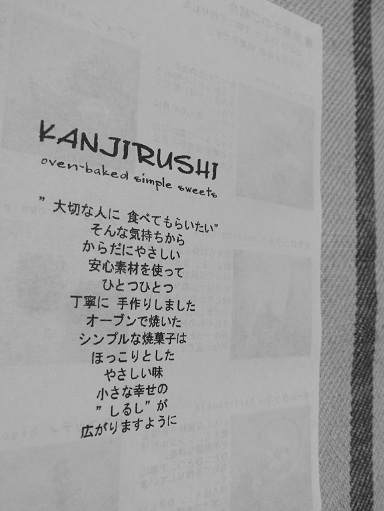 KANJIRUSHI
oven-baked simple sweets
”大切な人に 食べてもらいたい”
そんな気持ちから
からだにやさしい
安心素材を使って
ひとつひとつ
丁寧に 手作りしました
オーブンで焼いた
シンプルな焼菓子は
ほっこりとした
やさしい味
小さな幸せの
”しるし”が
広がりますように